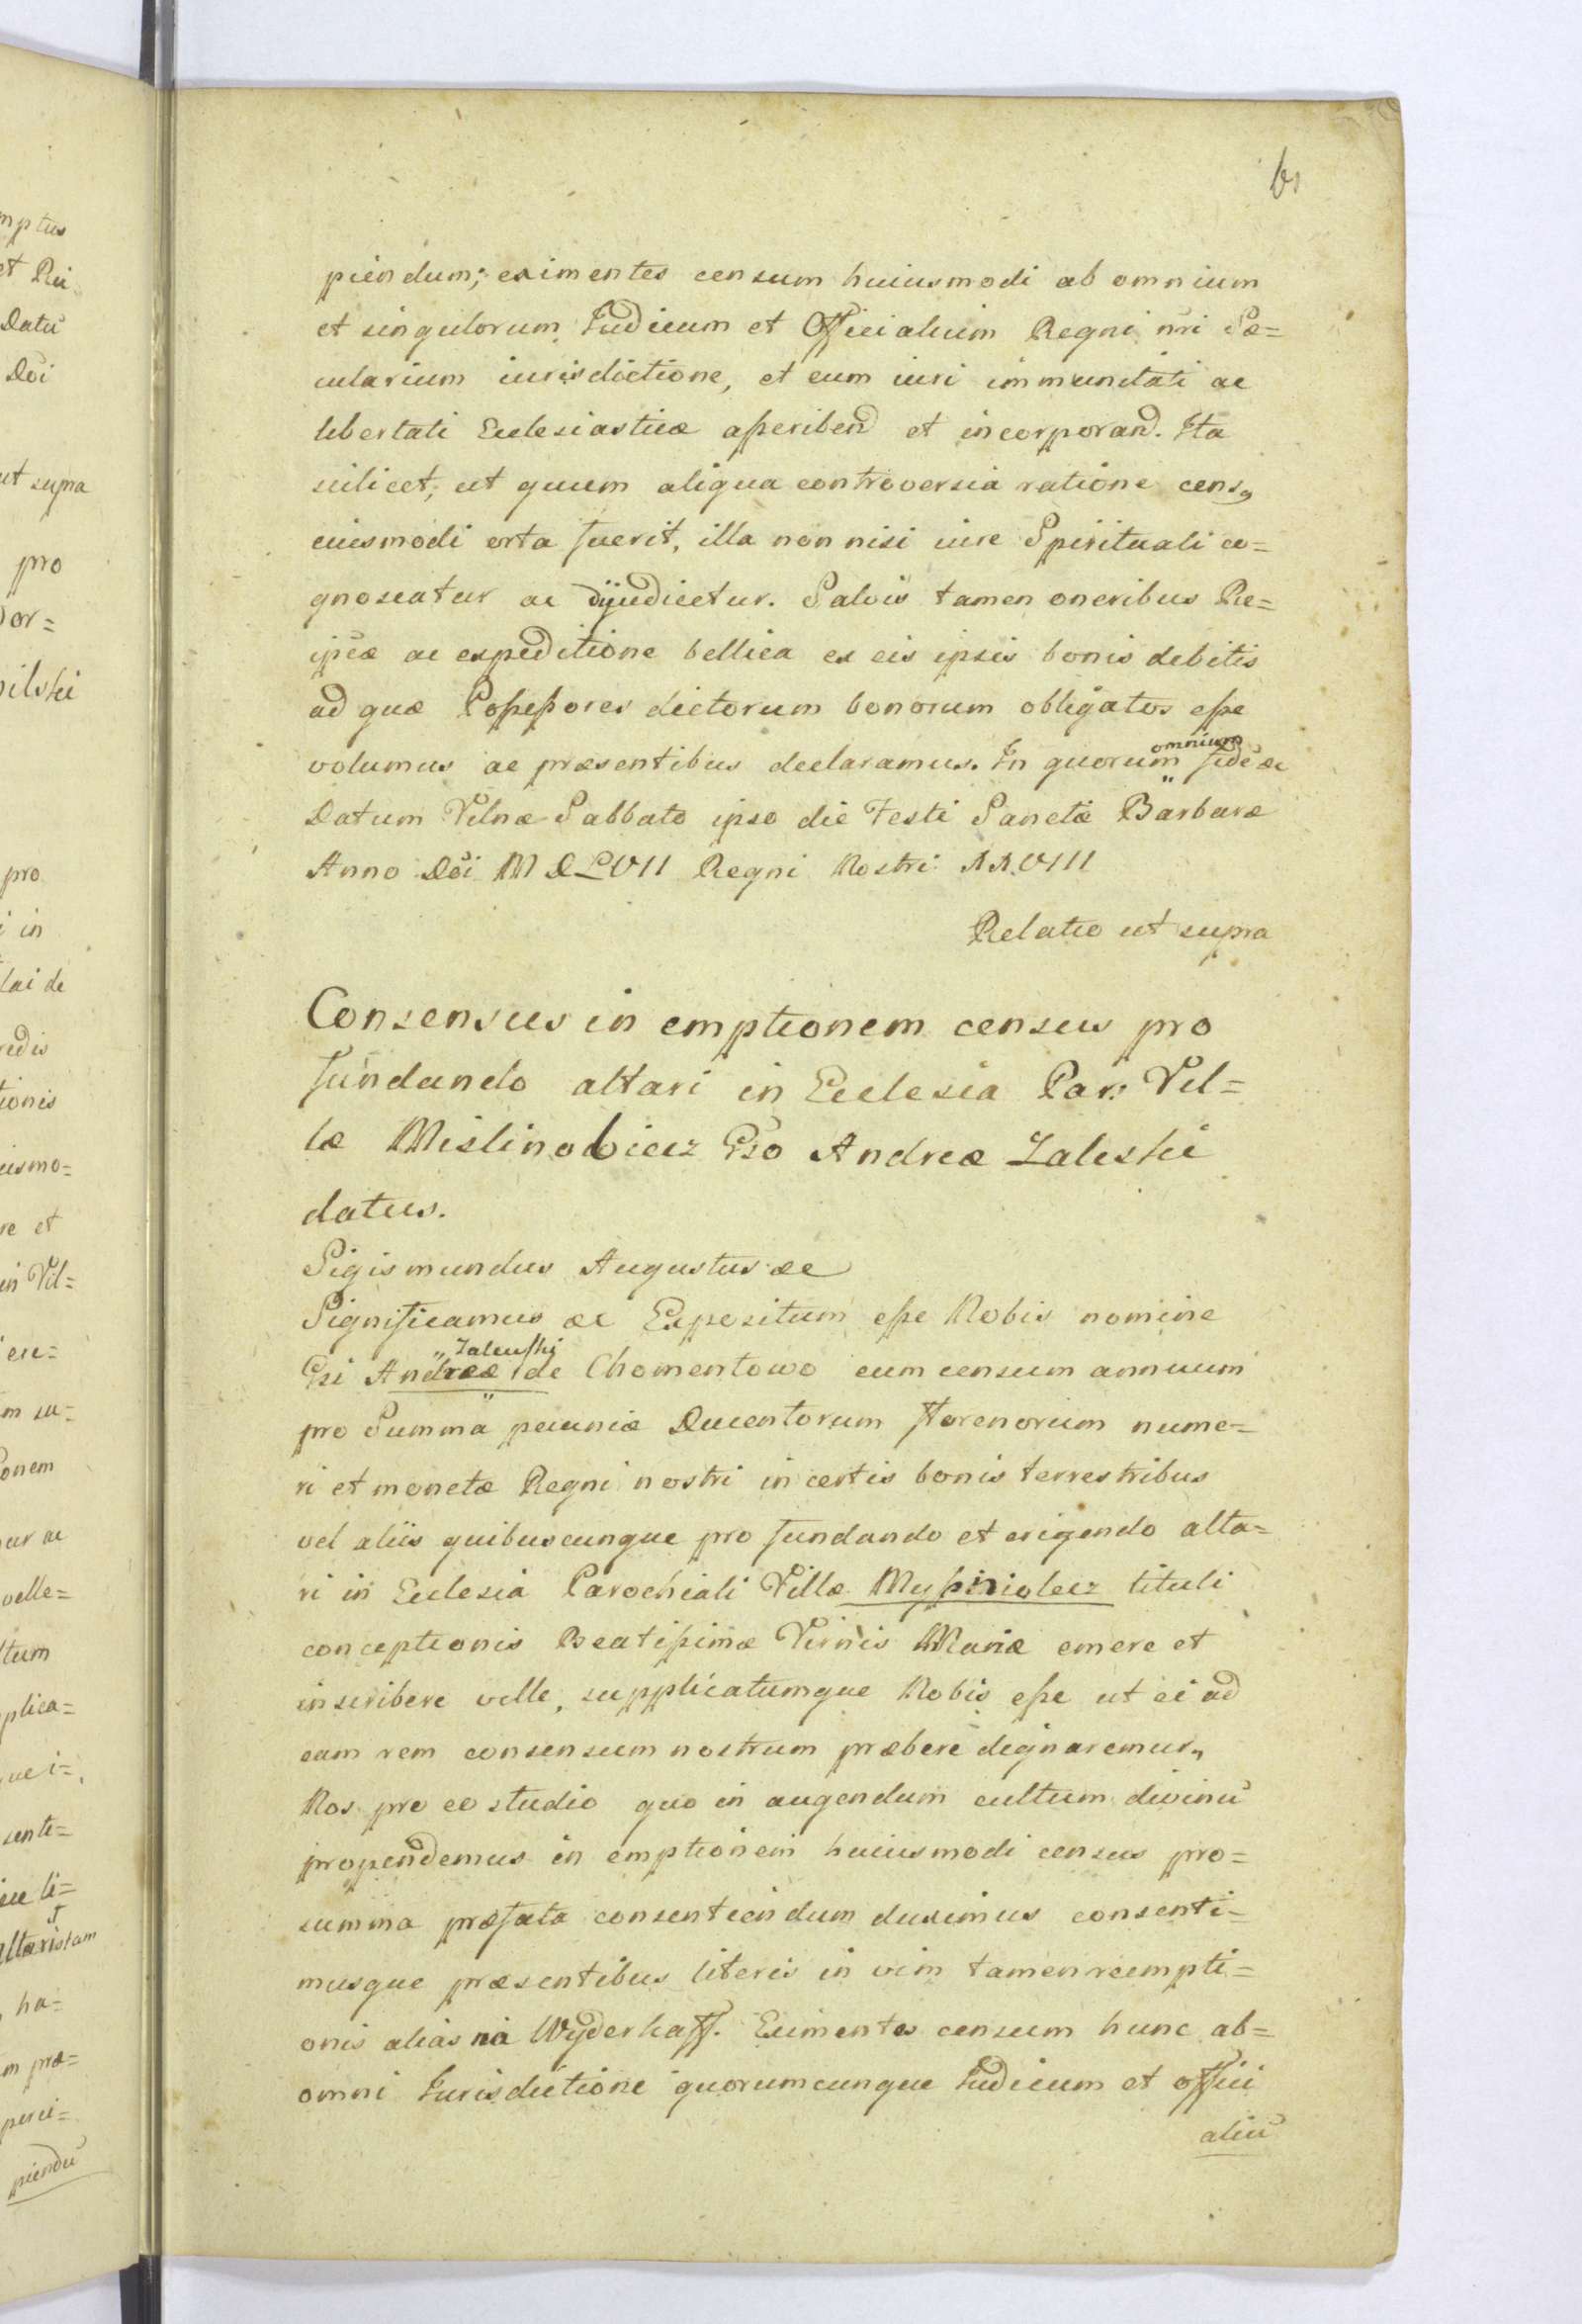 61
piendum; eximentes censum huiusmodi ab omnium
et singulorum Judicum et Officialium Regni nri Sæ=
cularium iurisdictione, et eum iuri immunitati ac
libertati Ecclesiasticæ asscribend et incorporand. Ita
scilicet, ut quum aliqua controversia ratione cens9
eiusmodi orta fuerit, illa non nisi iure Spirituali co=
gnoscatur ac dijudicetur. Salvis tamen oneribus Re=
ipcæ ac expeditione bellica ex eis ipsis bonis debitis
ad quæ Possessores dictorum bonorum obligatos esse
volumus ac præsentibus declaramus. In quorum omnium fidē &c
Datum Vilnæ Sabbato ipso die Festi Sanctæ Barbaræ
Anno Dōi MDLVII Regni Nostri XX.VIII
Relatio ut supra
Consensus in emptionem census pro
fundando altari in Ecclesia Par: Vil=
læ Mislinobicez Gso Andreæ Zaleski
datus.
Sigismundus Augustus &c
Significamus &c Expositum esse Nobis nomine
Gsi Andreæ Zaleuski de Chomentowo eum censum annuum
pro Summa pecuniæ Ducentorum florenorum nume=
ri et monetæ Regni nostri in certis bonis terrestribus
vel aliis quibuscunque pro fundando et erigendo alta=
ri in Ecclesia Parochiali Villæ tituli
conceptionis Beatissimæ Virnis Mariæ emere et
inscribere velle, supplicatumque Nobis esse ut ei ad
eam rem consensum nostrum præbere dignaremur„
Nos pro eo studio quo in augendum cultum divinū
propendemus in emptionem huiusmodi census pro=
summa præfata consentiendum duximus consenti=
musque præsentibus literis in vim tamen reempti=
onis alias na Wyderkaff. Eximentes censum hunc ab=
omni Jurisdictione quorumcunque Judicum et offici
aliū
mptus
et Rei
Datū
Dōi
ut supra
pro
pro
in
lai de
tionis
iusmo=
re et
in Vil=
m su=
onem
velle=
tum
plica=
senti=
altaristam
ha=
m præ=
perci=
piendū